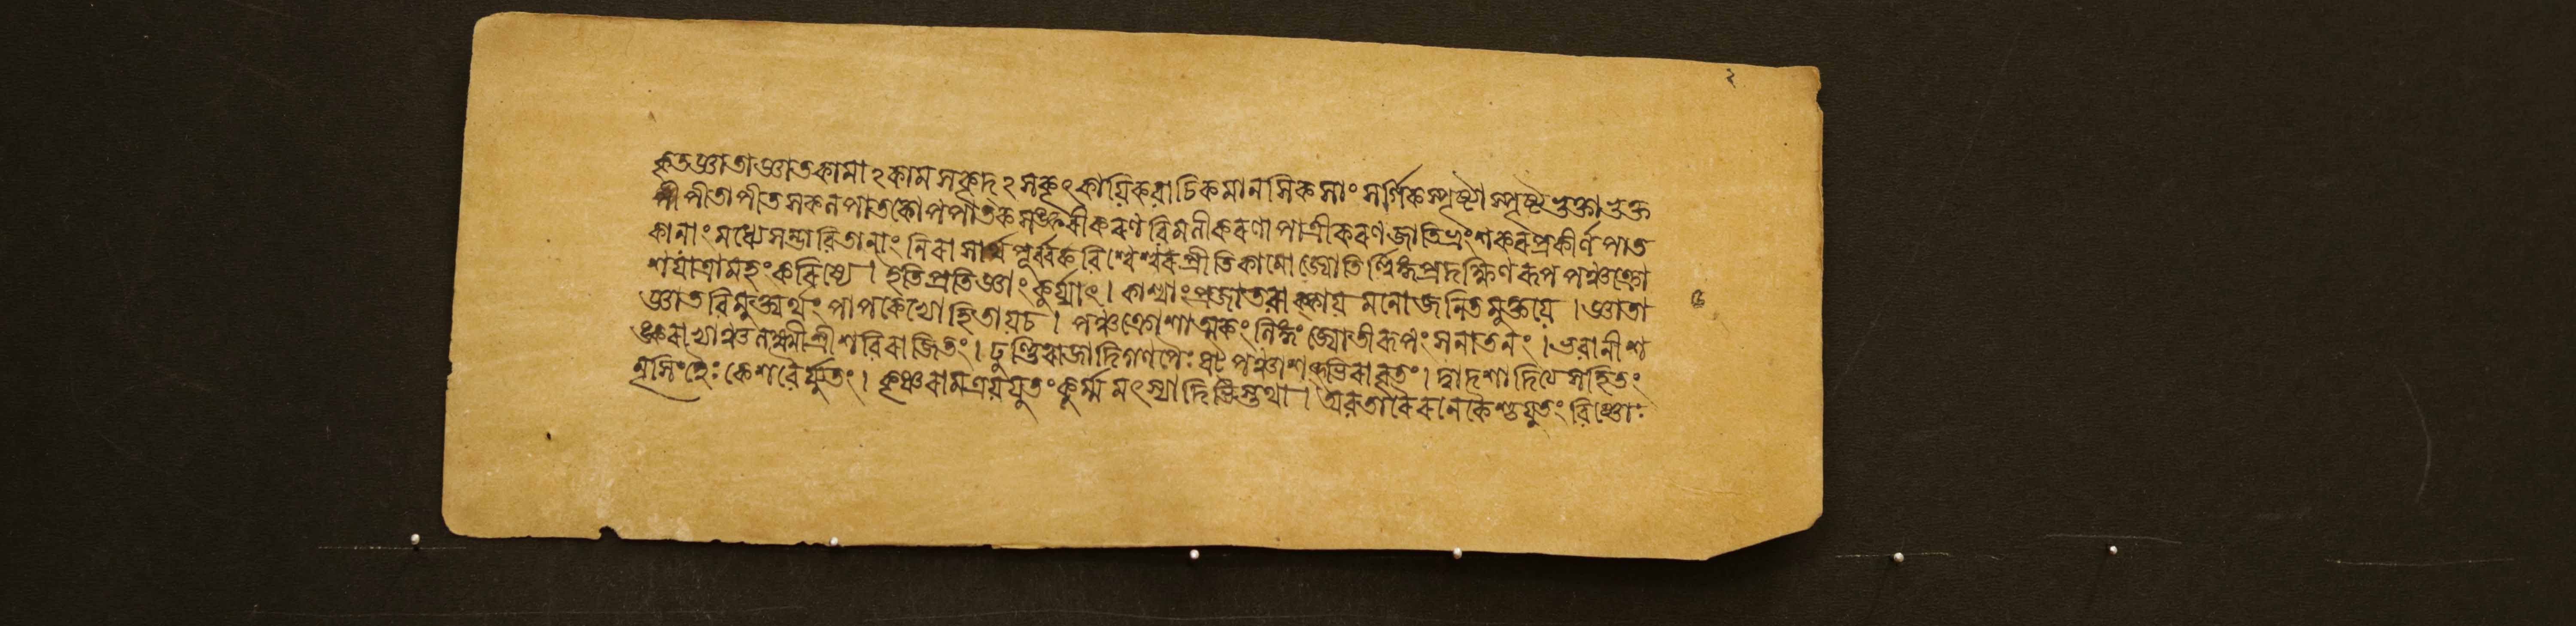 ২
কৃতজ্ঞাতাজ্ঞাতকামাঽকামসকৃদঽসকৃৎকায়িকবাচিকমানসিকসাংসর্গিকস্পৃষ্টাস্পৃষ্টভুক্তাভুক্ত
পীতাপীতসকলপাতকোপপাতকসঙ্করীকরণমলিনীকরণাপাত্রীকরণজাতিভ্রংশকরপ্রকীর্ণপাত
কানাংমধ্যেসম্ভাবিতানাং নিরাসার্থপূর্ব্বকবিশ্বেশ্বরপ্রীতিকামোজ্যোতির্লিঙ্গপ্রদক্ষিণরূপপঞ্চক্রো
শযাত্রামহংকরিষ্যে। ইতিপ্রতিজ্ঞাংকুর্য্যাৎ। কাশ্যাংপ্রজাতবাক্কায়মনোজনিতমুক্তয়ে। জ্ঞাতা
জ্ঞাতবিমুক্ত্যর্থং পাপকেভ্যোহিতায়চ। পঞ্চক্রোশাত্মকংলিঙ্গংজ্যোতীরূপংসনাতনং। ভবানীশ
ঙ্করাভ্যাঞ্চলক্ষ্মীশ্রীশবিরাজিতং। ঢুণ্ঢিরাজাদিগণপৈঃষট্পঞ্চাশদ্ভিরাবৃতং। দ্বাদশাদিত্যসহিতং
নৃসিংহৈঃকেশবৈর্যুতং। কৃষ্ণরামত্রয়যুতংকূর্ম্মমৎস্যাদিভিস্তথা। অবতারৈরনেকৈশ্চযুতংবিষ্ণোঃ